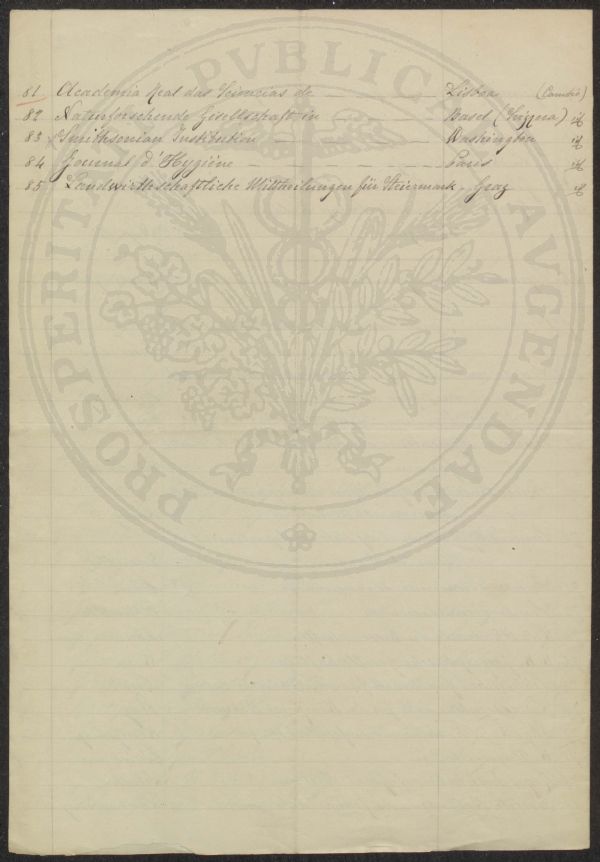 81 Academia Real das Sciencias de — — — Lisboa (Cambio)
82 Naturforschende Gesellschaft in — — Basel (Svizzera) id
83 Smithsonian Institution — — — Washington id
84 Journal d'Hygiène — — — Paris id
85 Landwirthschaftliche Mittheilungen für Steiermark - Graz id
PROSPERITATI PVBLICAE AVGENDAE